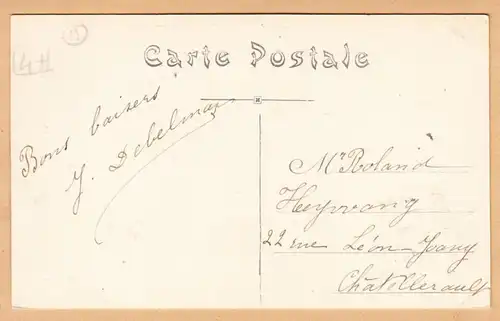 14
4H
Carte Postale
Bons baisers
Y. Debelmas
Mr Roland
Heyvang
22 rue Léon-Pary
Châtellerault